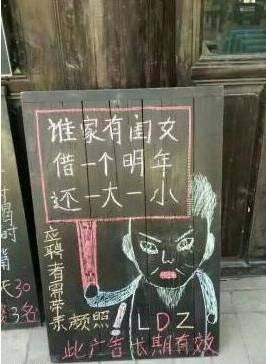 谁家有闺女
借一个明年
还一大一小
应聘者需带
素颜照!
LDZ
此广告长期有效
时
30
3名